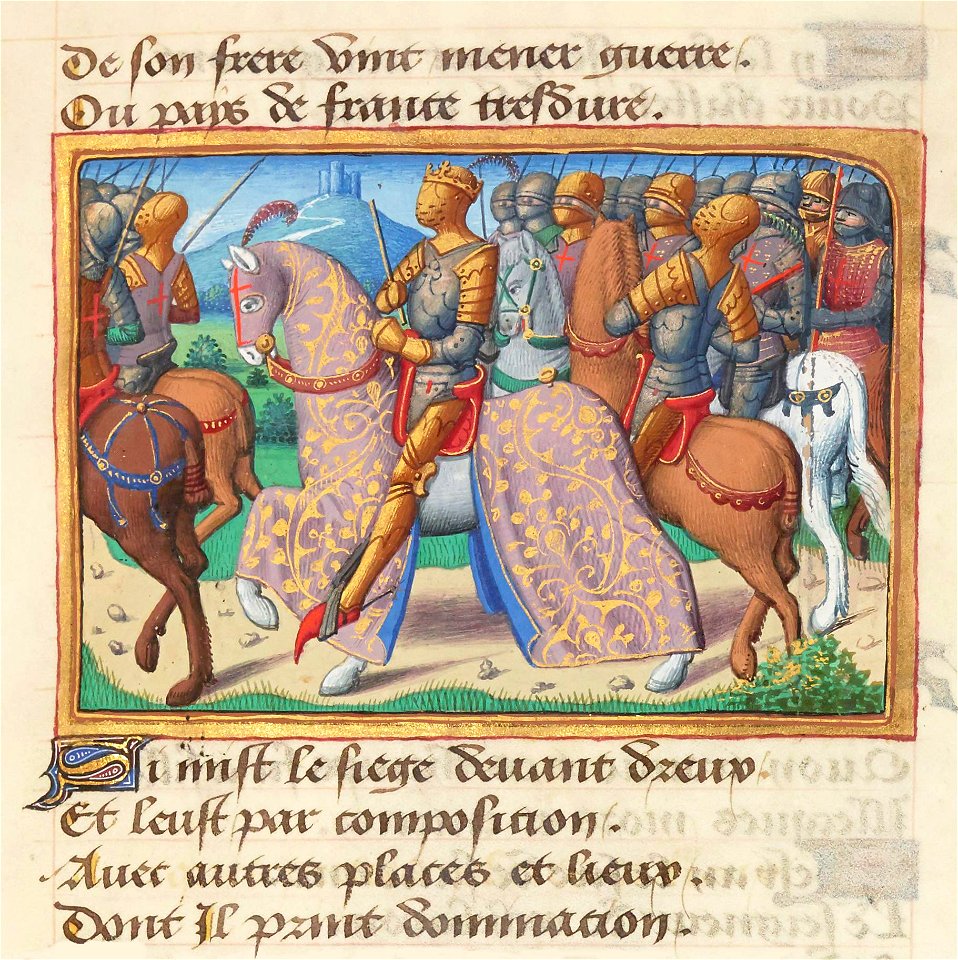 De son frere vint mener guerre.
Ou pays de france tresdure.
Si mist le siege devant dreux.
Et leust par composicion.
Avec autres places et lieux.
Dont Il print dominacion.